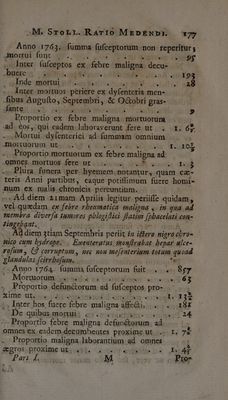 M. STOLL. RATIO MEDENDI. 177
Anno 1763. summa susceptorum non reperitur,
mortui sunt . . . . . 95
Inter susceptos ex febre maligna decu-
buere . . . . . 193
Inde mortui . . . . . 28
Inter mortuos periere ex dysenteria men-
sibus Augusto, Septembri, & Octobri gras-
sante . . . . . 9
Proportio ex febre maligna mortuorum
ad eos, qui eadem laboraverunt fere ut . 1. 6
Mortui dysenterici ad summam omnium
mortuorum ut . . . . 1. 10
Proportio mortuorum ex febre maligna ad
omnes mortuos fere ut . . . . 1. 3
Plura funera per hyemem notantur, quam cæ-
teris Anni partibus, eaque potissimum fuere homi-
num ex malis chronicis pereuntium.
Ad diem 21mam Aprilis legitur periisse quidam,
vel quædam ex febre rheumatica maligna, in qua ad
membra diversa tumores phlogistici statim sphacelati con-
tingebant.
Ad diem 1tiam Septembris periit in ictero nigro chro-
nico cum hydrope. Exenteratus monstrabat hepar ulce-
rosum, & corruptum, nec non mesenterium totum quoad
glandulas scirrhosum.
Anno 1764. summa susceptorum fuit . . 857
Mortuorum . . . . . 63
Proportio defunctorum ad susceptos pro-
xime ut . . . . . 1. 13
Inter hos fuere febre maligna affecti . . 181
De quibus mortui . . . . . 24
Proportio febre maligna defunctorum ad
omnes ex eadem decumbentes proxime ut . 1. 7
Proportio maligna laborantium ad omnes
ægros proxime ut . . . . 1. 4
Pars I. M Pro-